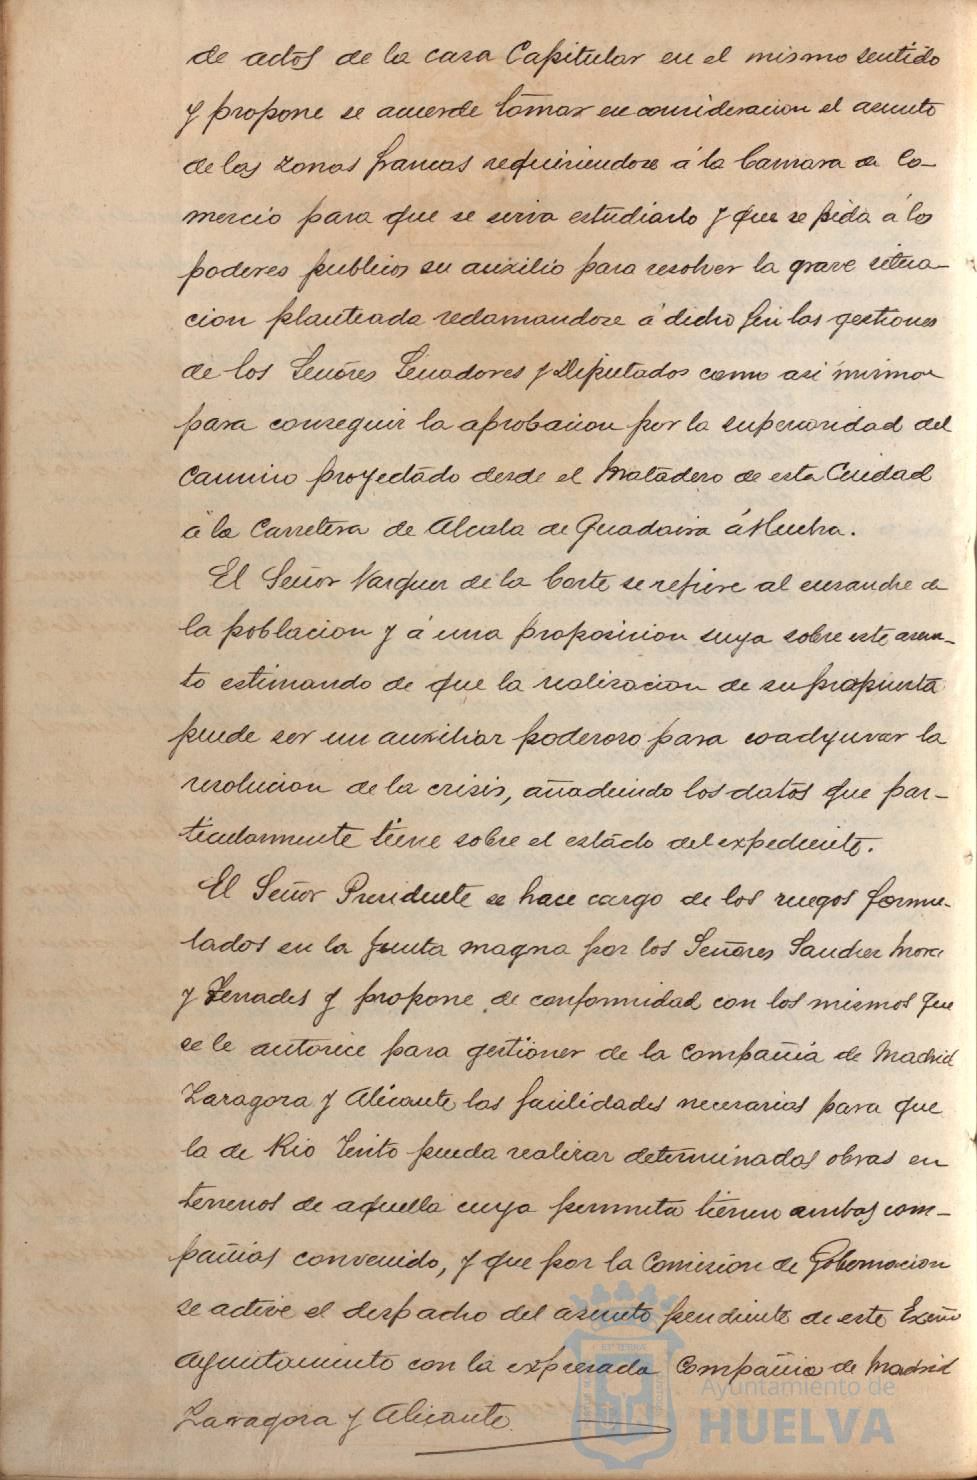 de actos de la casa Capitular en el mismo sentido
y propone se acuerde tomar en consideracion el asunto
de las zonas francas requiriendose á la Camara de Co-
mercio para que se sirva estudiarlo y que se pida á los
poderes publicos su auxilio para resolver la grave situa-
cion planteada reclamandose á dicho fin las gestiones
de los Señores Senadores y Diputados como asi mismo
para conseguir la aprobacion por la superioridad del
camino proyectado desde el Matadero de esta Ciudad
á la Carretera de Alcala de Guadaira á Huelva.
El Señor Vazquez de la Corte se refiere al ensanche de
la poblacion y á una proposicion suya sobre este asun-
to estimando de que la realizacion de su propuesta
puede ser un auxiliar poderoso para coadyuvar la
resolucion de la crisis, añadiendo los datos que par-
ticularmente tiene sobre el estado del expediente.
El Señor Presidente se hace cargo de los ruegos formu-
lados en la Junta magna por los Señores Sanchez Mora
y Terrades y propone de conformidad con los mismos que
se le autorice para gestionar de la Compañia de Madrid
Zaragoza y Alicante las facilidades necesarias para que
la de Rio Tinto pueda realizar determinadas obras en
terrenos de aquella cuya permuta tienen ambas com-
pañias convenido, y que por la Comision de Gobernacion
se active el despacho del asunto pendiente de este Excmo
Ayuntamiento con la expresada Compañia de Madrid
Zaragoza y Alicante.
Ayuntamiento de
HUELVA